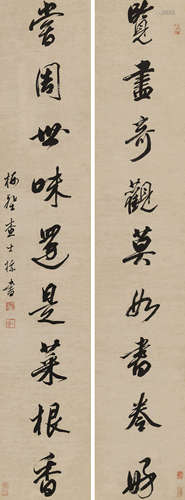 覽盡奇觀莫如書卷好
嘗周世味還是菜根香
梅壑查士標書